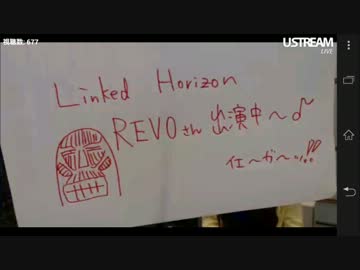 視聴数: 677
USTREAM
LIVE
Linked Horizon
REVOさん 出演中〜♪
イェ〜ガ〜!!